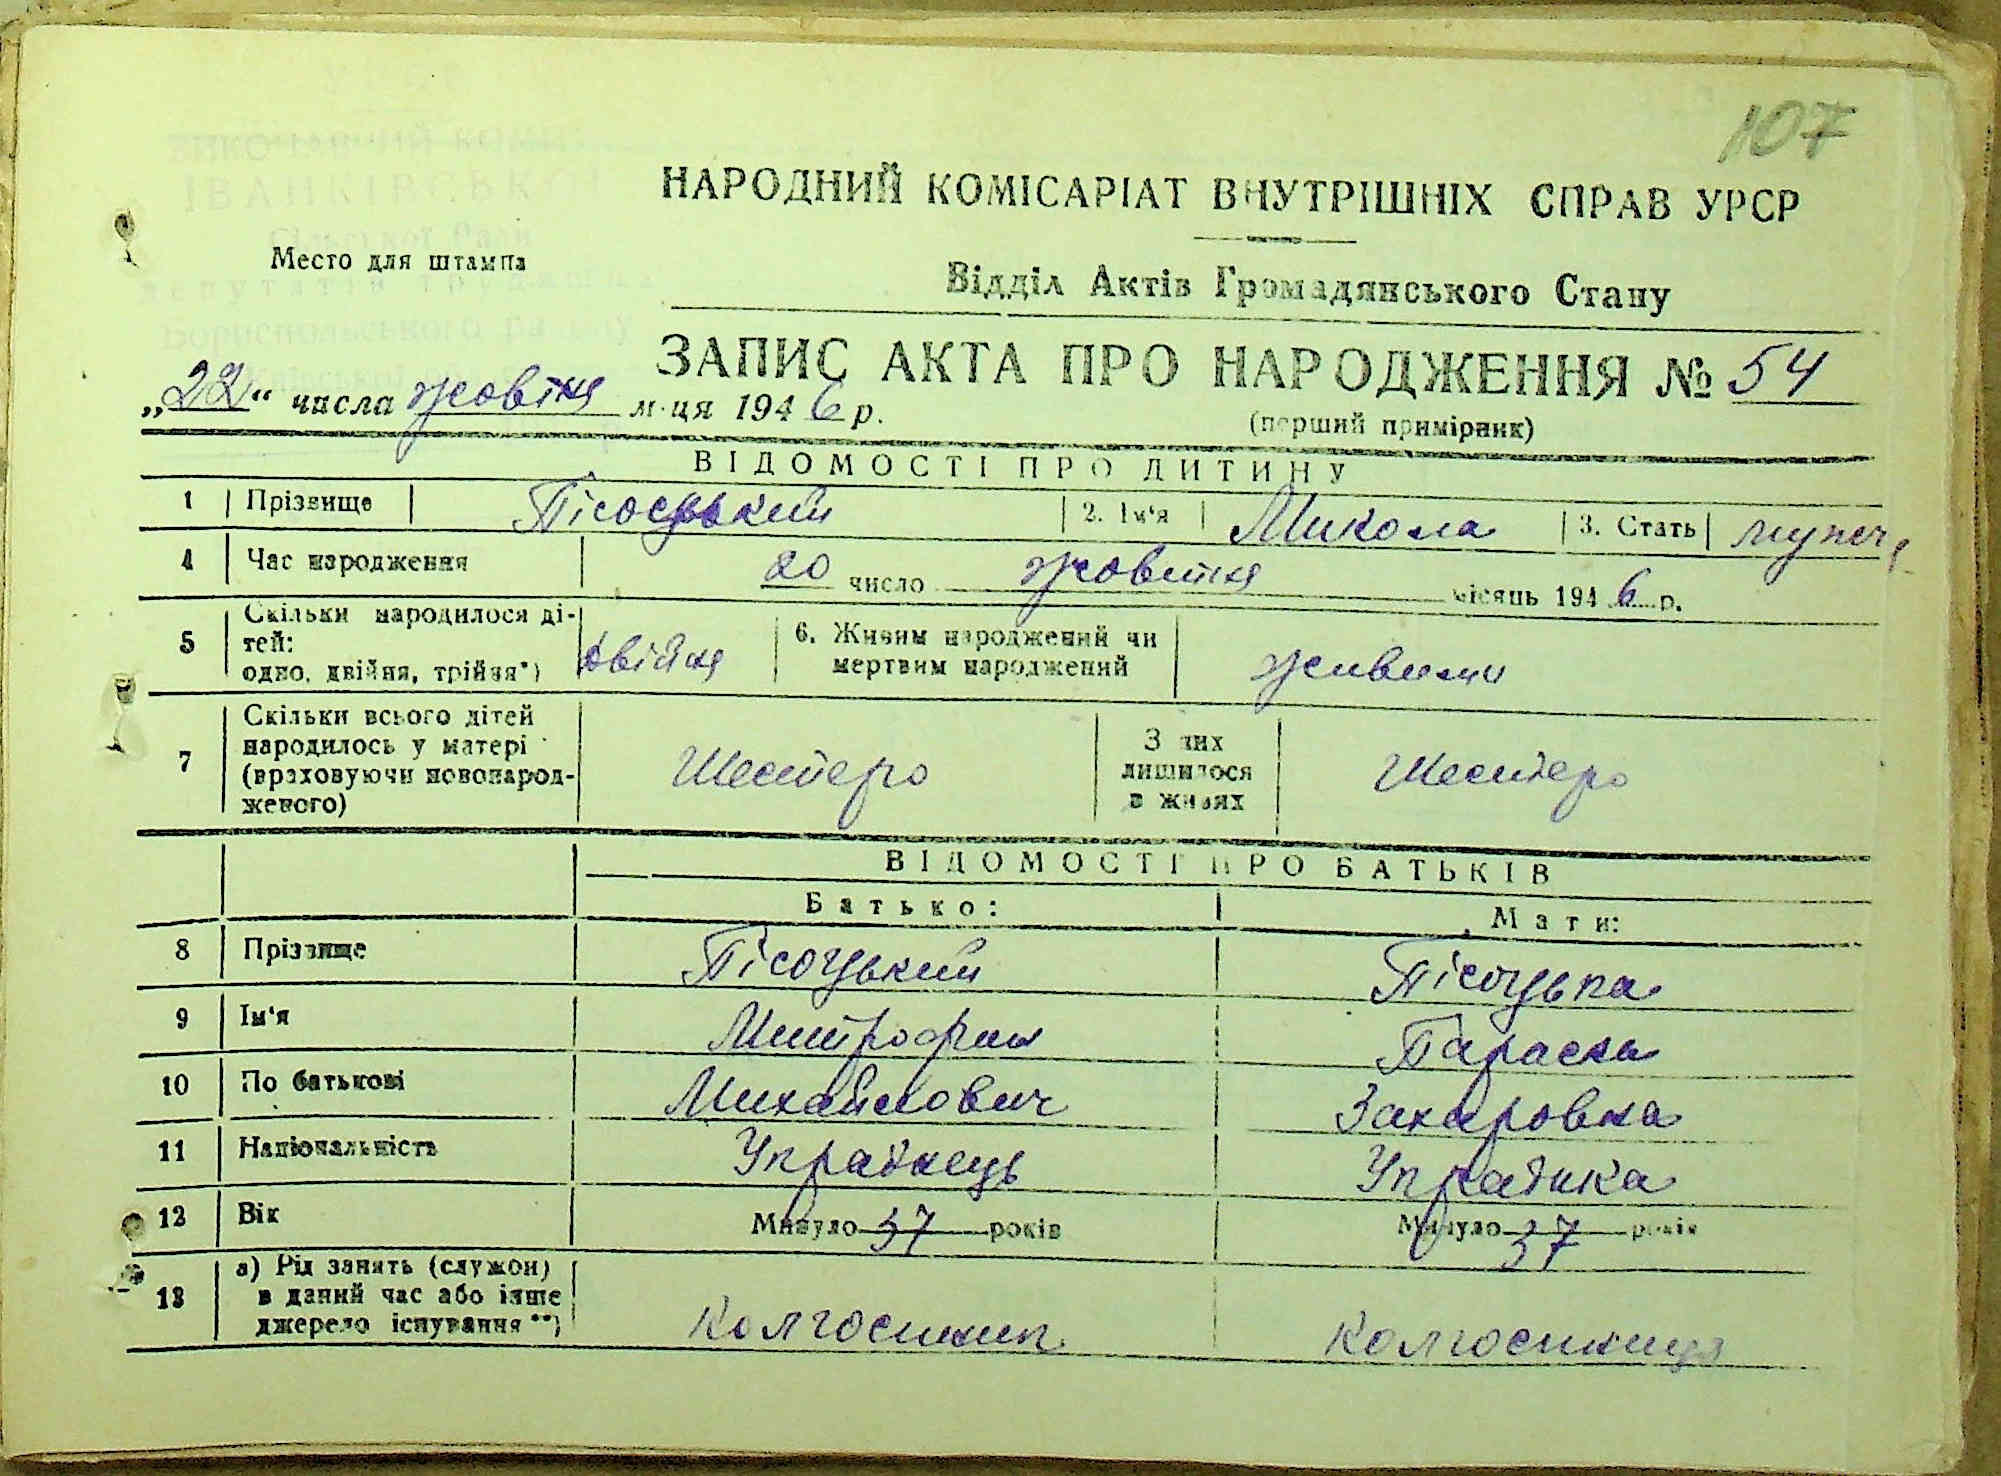 107
НАРОДНИЙ КОМІСАРІАТ ВНУТРІШНІХ СПРАВ УРСР
Место для штампа
Відділ Актів Громадянського Стану
ЗАПИС АКТА ПРО НАРОДЖЕННЯ № 54
„22“ числа жовтня м-ця 1946 р.
(перший примірник)
ВІДОМОСТІ ПРО ДИТИНУ
1 Прізвище Пісоцький 2. Ім'я Микола 3. Стать
4 Час народження 20 число жовтня місяць 1946 р.
5 Скільки народилося дітей:
одно, двійня, трійня*) двійня
6. Живим народжений чи
мертвим народжений живими
7 Скільки всього дітей
народилось у матері
(враховуючи новонарод-
женого) Шестеро
З них
лишилося
в живих Шестеро
ВІДОМОСТІ ПРО БАТЬКІВ
Батько: Мати:
8 Прізвище Пісоцький Пісоцька
9 Ім'я Митрофан Параска
10 По батькові Михайлович Захаровна
11 Національність Українець Українка
12 Вік Минуло 37 років Минуло 37 років
13 а) Рід занять (служби)
в даний час або інше
джерело існування **) Колгоспник Колгоспниця